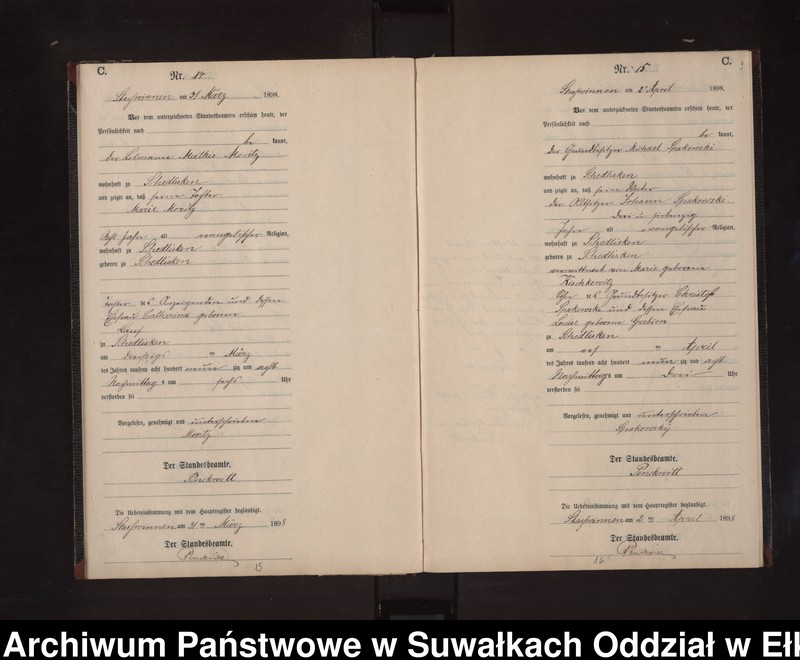 C.
Nr. 14.
am 31 März 1898.
Vor dem unterzeichneten Standesbeamten erschien heute, der
Persönlichkeit nach
be kannt,
Moritz
wohnhaft zu Schedlisken
und zeigte an, daß seine Tochter
Marie Moritz
alt evangelischer Religion,
wohnhaft zu Schedlisken
geboren zu Schedlisken
Tochter des Anzeigenden und dessen
Ehefrau Catharina geborene
zu Schedlisken
am März
des Jahres tausend acht hundert neun zig und acht
Nachmittags um sechs Uhr
verstorben sei
Vorgelesen, genehmigt und unterschrieben
Moritz
Der Standesbeamte.
Die Uebereinstimmung mit dem Hauptregister beglaubigt.
am 31 ten März 1898
Der Standesbeamte.
15
C.
Nr. 15.
am 2 April 1898.
Vor dem unterzeichneten Standesbeamten erschien heute, der
Persönlichkeit nach
be kannt,
der Grundbesitzer Michael Spakowski
wohnhaft zu Schedlisken
und zeigte an, daß sein Vater
der Altsitzer Johann Spakowski
drei u siebenzig
Jahre alt evangelischer Religion,
wohnhaft zu Schedlisken
geboren zu Schedlisken
verwittwet von Marie geborene
Sohn des Grundbesitzer
Spakowski und dessen Ehefrau
Louise geborene
zu Schedlisken
am April
des Jahres tausend acht hundert neun zig und acht
Nachmittags um drei Uhr
verstorben sei
Vorgelesen, genehmigt und unterschrieben
Spakowsky
Der Standesbeamte.
Die Uebereinstimmung mit dem Hauptregister beglaubigt.
am 2 ten April 1898
Der Standesbeamte.
16
Archiwum Państwowe w Suwałkach Oddział w Ełk